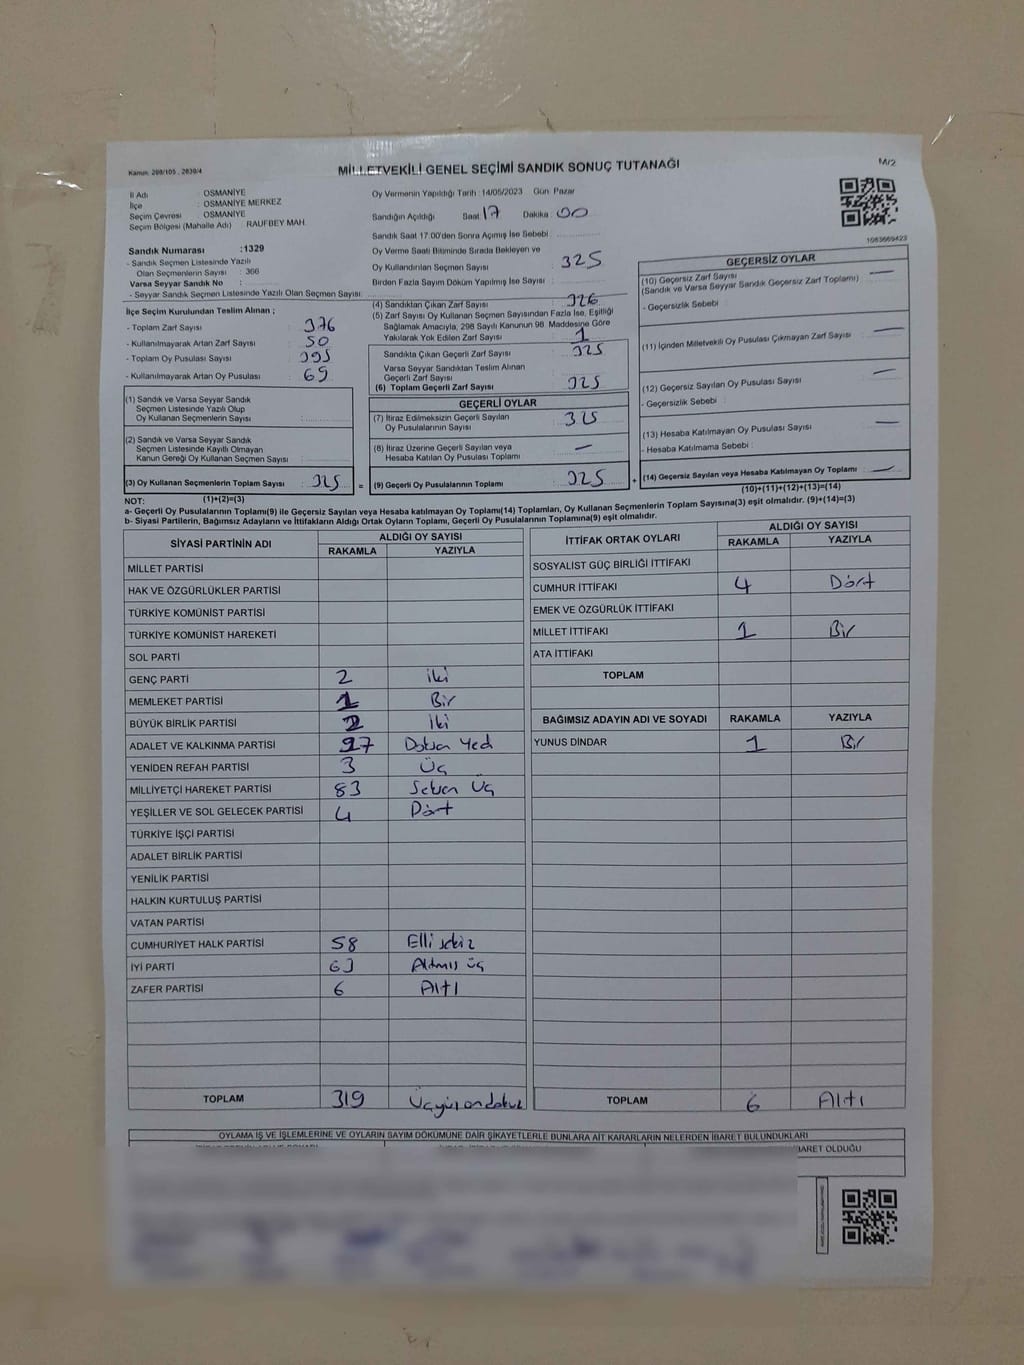 Kanun: 298/105, 2839/4
MİLLETVEKİLİ GENEL SEÇİMİ SANDIK SONUÇ TUTANAĞI
M/2
İl Adı : OSMANİYE
İlçe : OSMANİYE MERKEZ
Seçim Çevresi : OSMANİYE
Seçim Bölgesi (Mahalle Adı) RAUFBEY MAH.
Sandık Numarası :1329
- Sandık Seçmen Listesinde Yazılı
Olan Seçmenlerin Sayısı : 366
Varsa Seyyar Sandık No :
- Seyyar Sandık Seçmen Listesinde Yazılı Olan Seçmen Sayısı:
İlçe Seçim Kurulundan Teslim Alınan ;
- Toplam Zarf Sayısı : 376
- Kullanılmayarak Artan Zarf Sayısı : 50
- Toplam Oy Pusulası Sayısı : 395
- Kullanılmayarak Artan Oy Pusulası : 69
(1) Sandık ve Varsa Seyyar Sandık
Seçmen Listesinde Yazılı Olup
Oy Kullanan Seçmenlerin Sayısı :
(2) Sandık ve Varsa Seyyar Sandık
Seçmen Listesinde Kayıtlı Olmayan
Kanun Gereği Oy Kullanan Seçmen Sayısı :
(3) Oy Kullanan Seçmenlerin Toplam Sayısı : 325 =
Oy Vermenin Yapıldığı Tarih : 14/05/2023 Gün Pazar
Sandığın Açıldığı Saat 17 Dakika : 00
Sandık Saat 17:00'den Sonra Açılmış İse Sebebi :
Oy Verme Saati Bitiminde Sırada Bekleyen ve
Oy Kullandırılan Seçmen Sayısı 325
Birden Fazla Sayım Döküm Yapılmış İse Sayısı :
(4) Sandıktan Çıkan Zarf Sayısı : 326
(5) Zarf Sayısı Oy Kullanan Seçmen Sayısından Fazla İse, Eşitliği
Sağlamak Amacıyla, 298 Sayılı Kanunun 98. Maddesine Göre
Yakılarak Yok Edilen Zarf Sayısı : 1
Sandıkta Çıkan Geçerli Zarf Sayısı : 325
Varsa Seyyar Sandıktan Teslim Alınan
Geçerli Zarf Sayısı :
(6) Toplam Geçerli Zarf Sayısı : 325
GEÇERLİ OYLAR
(7) İtiraz Edilmeksizin Geçerli Sayılan
Oy Pusulalarının Sayısı : 325
(8) İtiraz Üzerine Geçerli Sayılan veya
Hesaba Katılan Oy Pusulası Toplamı : —
(9) Geçerli Oy Pusulalarının Toplamı : 325 +
1083669423
GEÇERSİZ OYLAR
(10) Geçersiz Zarf Sayısı : —
(Sandık ve Varsa Seyyar Sandık Geçersiz Zarf Toplamı)
- Geçersizlik Sebebi :
(11) İçinden Milletvekili Oy Pusulası Çıkmayan Zarf Sayısı : —
(12) Geçersiz Sayılan Oy Pusulası Sayısı : —
- Geçersizlik Sebebi :
(13) Hesaba Katılmayan Oy Pusulası Sayısı : —
- Hesaba Katılmama Sebebi :
(14) Geçersiz Sayılan veya Hesaba Katılmayan Oy Toplamı : —
NOT: (1)+(2)=(3)
(10)+(11)+(12)+(13)=(14)
a- Geçerli Oy Pusulalarının Toplamı(9) ile Geçersiz Sayılan veya Hesaba katılmayan Oy Toplamı(14) Toplamları, Oy Kullanan Seçmenlerin Toplam Sayısına(3) eşit olmalıdır. (9)+(14)=(3)
b- Siyasi Partilerin, Bağımsız Adayların ve İttifakların Aldığı Ortak Oyların Toplamı, Geçerli Oy Pusulalarının Toplamına(9) eşit olmalıdır.
SİYASİ PARTİNİN ADI ALDIĞI OY SAYISI
RAKAMLA YAZIYLA
MİLLET PARTİSİ
HAK VE ÖZGÜRLÜKLER PARTİSİ
TÜRKİYE KOMÜNİST PARTİSİ
TÜRKİYE KOMÜNİST HAREKETİ
SOL PARTİ
GENÇ PARTİ 2 iki
MEMLEKET PARTİSİ 1 Bir
BÜYÜK BİRLİK PARTİSİ 2 iki
ADALET VE KALKINMA PARTİSİ 97 Doksan Yedi
YENİDEN REFAH PARTİSİ 3 Üç
MİLLİYETÇİ HAREKET PARTİSİ 83 Seksen Üç
YEŞİLLER VE SOL GELECEK PARTİSİ 4 Dört
TÜRKİYE İŞÇİ PARTİSİ
ADALET BİRLİK PARTİSİ
YENİLİK PARTİSİ
HALKIN KURTULUŞ PARTİSİ
VATAN PARTİSİ
CUMHURİYET HALK PARTİSİ 58 Elli sekiz
İYİ PARTİ 63 Altmış üç
ZAFER PARTİSİ 6 Altı
TOPLAM 319 Üçyüzondokuz
İTTİFAK ORTAK OYLARI ALDIĞI OY SAYISI
RAKAMLA YAZIYLA
SOSYALİST GÜÇ BİRLİĞİ İTTİFAKI
CUMHUR İTTİFAKI 4 Dört
EMEK VE ÖZGÜRLÜK İTTİFAKI
MİLLET İTTİFAKI 1 Bir
ATA İTTİFAKI
TOPLAM
BAĞIMSIZ ADAYIN ADI VE SOYADI RAKAMLA YAZIYLA
YUNUS DİNDAR 1 Bir
TOPLAM 6 Altı
OYLAMA İŞ VE İŞLEMLERİNE VE OYLARIN SAYIM DÖKÜMÜNE DAİR ŞİKAYETLERLE BUNLARA AİT KARARLARIN NELERDEN İBARET BULUNDUKLARI
İBARET OLDUĞU